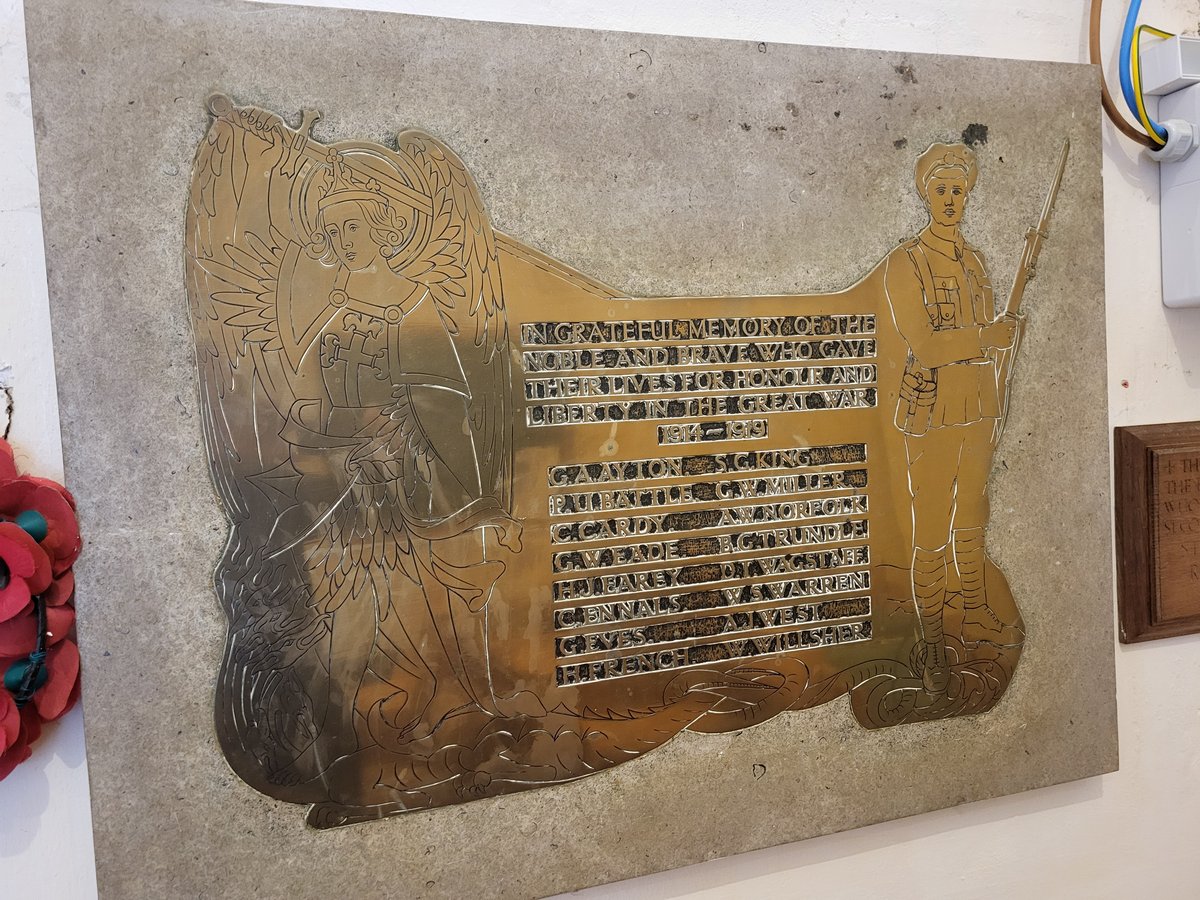 IN GRATEFUL MEMORY OF THE
NOBLE AND BRAVE WHO GAVE
THEIR LIVES FOR HONOUR AND
LIBERTY IN THE GREAT WAR
1914 – 1919
G.A.AYTON S.G.KING
P.U.BATTLE G.W.MILLER
C.CARDY A.W.NORFOLK
G.W.EADE B.G.TRUNDLE
H.J.FAREY D.T.WAGSTAFF
C.ENNALS W.S.WARREN
G.EVES. A.J.WEST
H.FRENCH W.WILLSHER
+ TH
THE